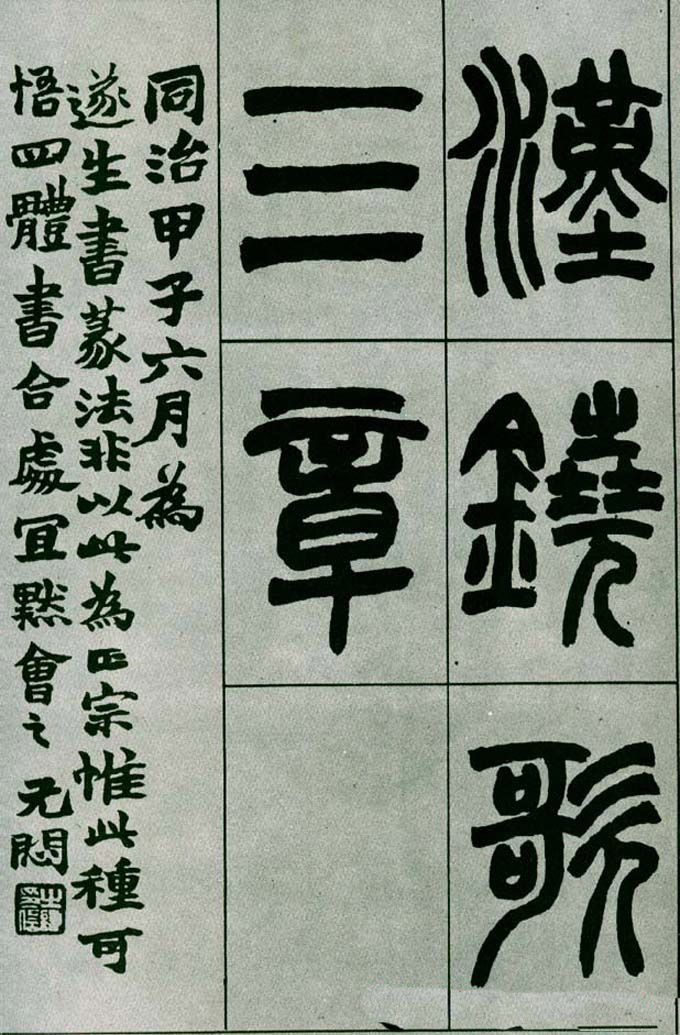 漢鐃歌
三章
同治甲子六月為
遂生書篆法非以此為正宗惟此種可
悟四體書合處宜默會之元悶